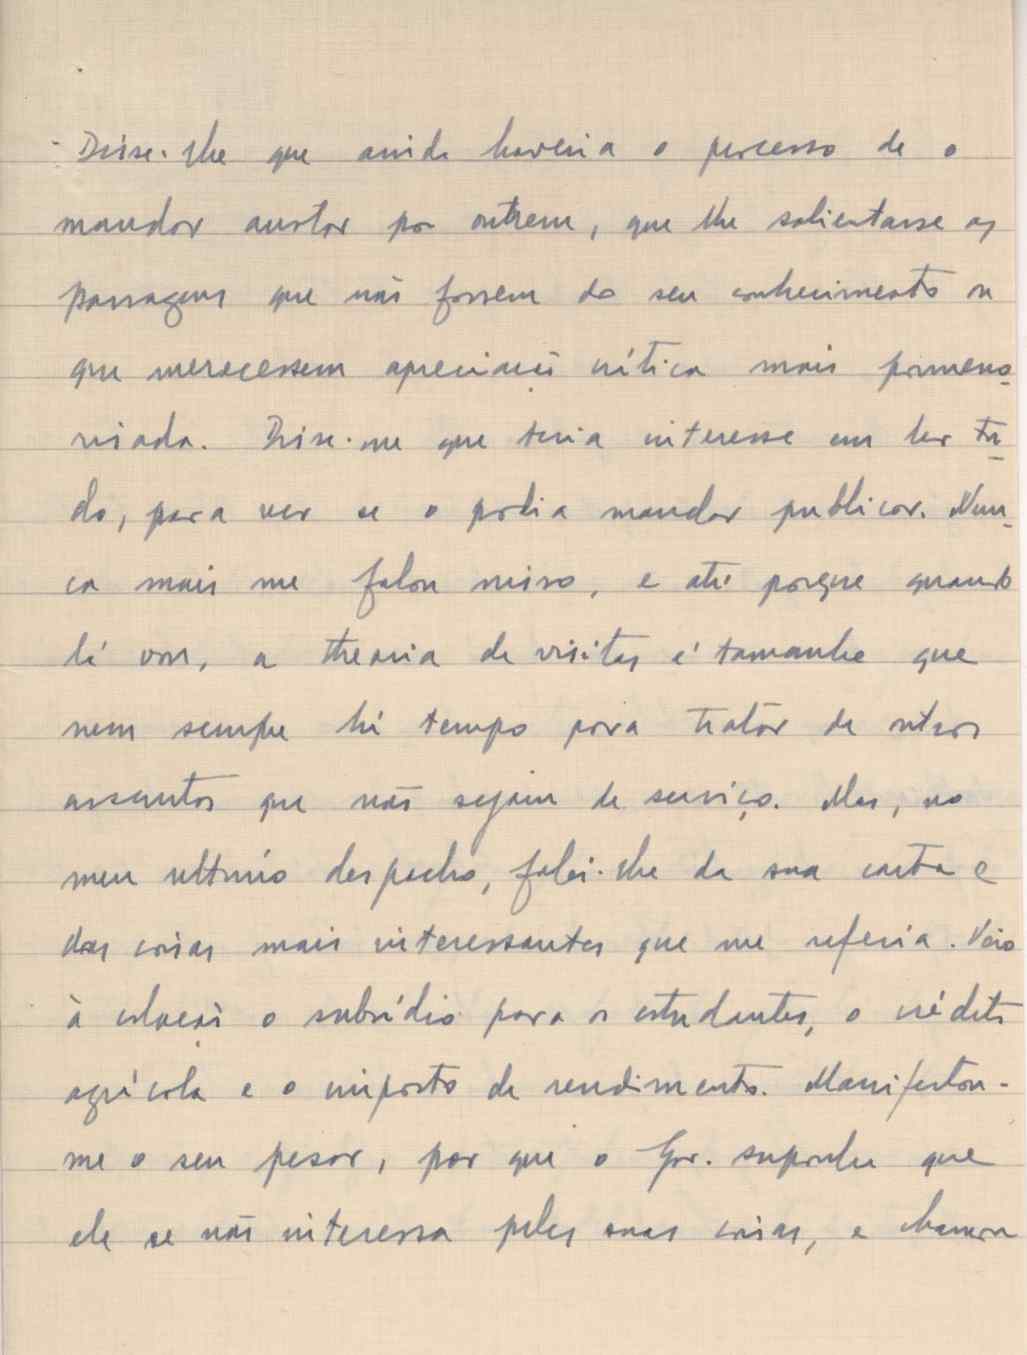 Disse-lhe que ainda haveria o processo de o
mandar anotar por outrem, que lhe salientasse as
passagens que não fossem do seu conhecimento ou
que merecessem apreciação crítica mais pormeno-
risada. Disse-me que teria interesse em ler tu-
do, para ver se o podia mandar publicar. Nun-
ca mais me falou nisso, e até porque quando
lá vou, a theoria de visitas é tamanha que
nem sempre há tempo para tratar de outros
assuntos que não sejam de serviço. Mas, no
meu ultimo despacho, falei-lhe da sua carta e
das coisas mais interessantes que me referia. Veio
à colação o subsídio para os estudantes, o crédito
agrícola e o imposto de rendimento. Manifestou-
me o seu pesar, por que o Gov. suponha que
ele se não interessa pelas suas coisas, e chamou